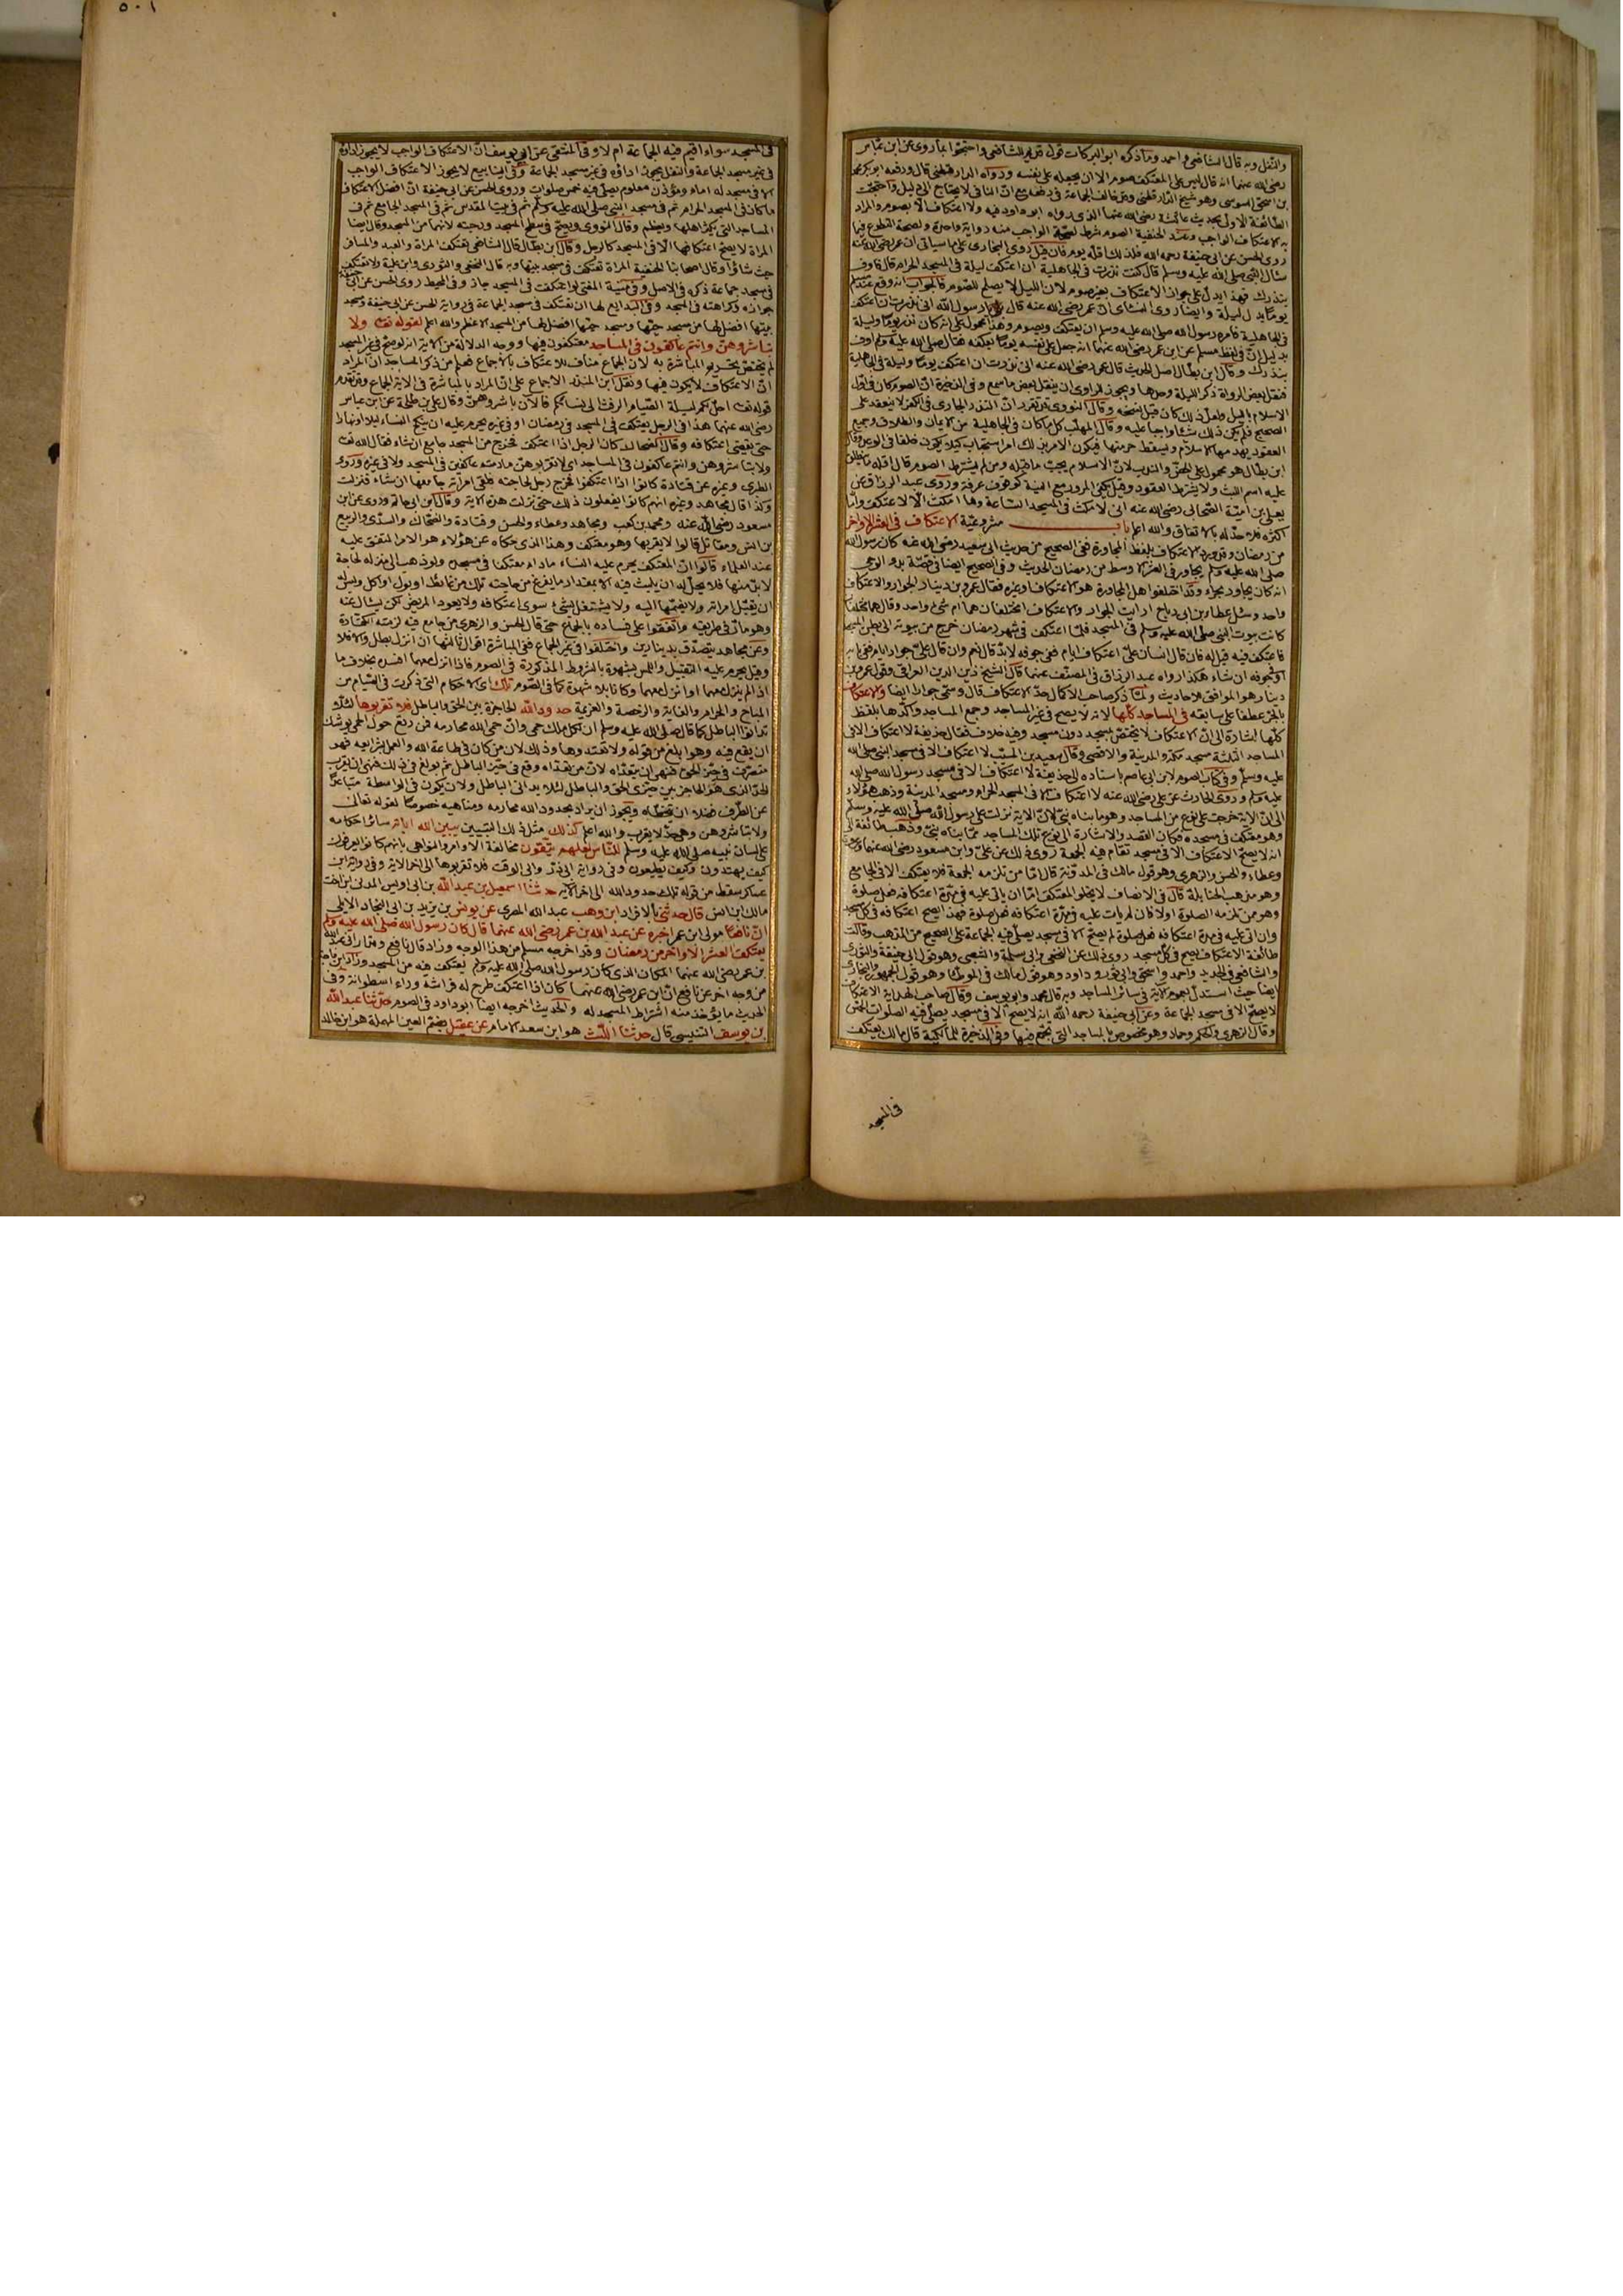 والنفل وبه قال الشافعي واحمد وما ذكره ابو البركات قول قديم للشافعي واحتجوا بما روى عن ابن عباس
رضي الله عنهما انه قال ليس على المعتكف صوم الا ان يجعله على نفسه ورواه الدارقطني قال ورفعه ابو بكر محمد
بن اسحق السوسي وهو شيخ الدارقطني وقد خالف الجماعة في رفعه مع ان النافي لا يحتاج الى دليل واحتجت
الطائفة الاولى بحديث عائشة رضي الله عنها الذي رواه ابو داود فيه ولا اعتكاف الا بصوم والمراد
به الاعتكاف الواجب وعند الحنفية الصوم شرط لصحة الواجب منه رواية واحدة ولصحة التطوع فيما
روى الحسن عن ابي حنيفة رحمه الله فلذلك اقله يوم فان قيل روى البخاري على ما سياتي ان عمر رضي الله عنه
سال النبي صلى الله عليه وسلم قال كنت نذرت في الجاهلية ان اعتكف ليلة في المسجد الحرام قال فاوف
بنذرك فهذا يدل على جواز الاعتكاف بغير صوم لان الليل لا يصلح للصوم فالجواب انه وقع عند مسلم
يوما بدل ليلة وايضا روى النسائي ان عمر رضي الله عنه قال يا رسول الله اني نذرت ان اعتكف
في الجاهلية فامره رسول الله صلى الله عليه وسلم ان يعتكف ويصوم وهذا محمول على انه كان نذر يوما وليلة
بدليل ان في لفظ مسلم عن ابن عمر رضي الله عنهما انه جعل على نفسه يوما يعتكفه فقال صلى الله عليه وسلم اوف
بنذرك وقال ابن بطال اصل الحديث قال عمر رضي الله عنه اني نذرت ان اعتكف يوما وليلة في الجاهلية
فنقل بعض الرواة ذكر الليلة وحدها ويجوز للراوي ان ينقل بعض ما سمع وفي الذخيرة ان الصوم كان في اول
الاسلام بالليل ولعل ذلك كان قبل نسخه وقال النووي قد تقرر ان النذر الجاري في الكفر لا ينعقد على
الصحيح فلم يكن ذلك شيئا واجبا عليه وقال المهلب كل ما كان في الجاهلية من الايمان والطلاق وجميع
العقود يهدمها الاسلام ويسقط حرمتها فيكون الامر بذلك امر استحباب كيلا يكون خلفا في الوعد وقال
ابن بطال هو محمول على الحض والندب لان الاسلام يجب ما قبله ومن لم يشترط الصوم قال اقله ما يطلق
عليه اسم اللبث ولا يشترط القعود وقيل يكفي المرور مع النية كوقوف عرفة وروى عبد الرزاق عن
يعلى بن امية الصحابي رضي الله عنه اني لامكث في المسجد الساعة وما امكث الا لاعتكف واما
اكثره فلا حد له بالاتفاق والله اعلم باب مشروعية الاعتكاف في العشر الاواخر
من رمضان وقد ورد الاعتكاف بلفظ المجاورة ففي الصحيح من حديث ابي سعيد رضي الله عنه كان رسول الله
صلى الله عليه وسلم يجاور في العشر الاوسط من رمضان الحديث وفي الصحيح ايضا في قصة بدو الوحي
انه كان يجاور بحراء وقد اختلفوا هل المجاورة هو الاعتكاف او غيره فقال عمرو بن دينار الجوار والاعتكاف
واحد وسئل عطاء بن ابي رباح ارايت الجوار والاعتكاف امختلفان هما ام شيء واحد وقال هما مختلفان
كانت بيوت النبي صلى الله عليه وسلم في المسجد فلما اعتكف في شهر رمضان خرج من بيوته الى بطن المسجد
فاعتكف فيه قيل له فان قال انسان علي اعتكاف ايام ففي جوفه لا بد قال نعم وان قال علي جوار ايام فببابه
او في جوفه ان شاء هكذا رواه عبد الرزاق في المصنف عنهما قال الشيخ زين الدين العراقي وقول عمرو بن
دينار هو الموافق للاحاديث ولما ذكر صاحب الاكمال حد الاعتكاف قال وسمي جوارا ايضا والاعتكاف
بالجر عطفا على سابقه في المساجد كلها لانه لا يصح في غير المساجد وجمع المساجد واكدها بلفظ
كلها اشارة الى ان الاعتكاف لا يختص بمسجد دون مسجد وفيه خلاف فقال حذيفة لا اعتكاف الا في
المساجد الثلثة مسجد مكة والمدينة والاقصى وقال سعيد بن المسيب لا اعتكاف الا في مسجد النبي صلى الله
عليه وسلم وفي كتاب الصوم لابن ابي عاصم باسناده الى حذيفة لا اعتكاف الا في مسجد رسول الله صلى الله
عليه وسلم وروى الحارث عن علي رضي الله عنه لا اعتكاف الا في المسجد الحرام ومسجد المدينة وذهب هؤلاء
الى ان الاية خرجت على نوع من المساجد وهو ما بناه نبي لان الاية نزلت على رسول الله صلى الله عليه وسلم
وهو معتكف في مسجده فكان القصد والاشارة الى نوع تلك المساجد مما بناه نبي وذهب طائفة الى
انه لا يصح الاعتكاف الا في مسجد تقام فيه الجمعة روى ذلك عن علي وابن مسعود رضي الله عنهما وعروة
وعطاء والحسن والزهري وهو قول مالك في المدونة قال اما من تلزمه الجمعة فلا يعتكف الا في الجامع
وهو مذهب الحنابلة قال في الانصاف لا يخلو المعتكف اما ان ياتي عليه في مدة اعتكافه فعل صلوة
وهو ممن تلزمه الصلوة اولا فان لم يات عليه في مدة اعتكافه فعل صلوة فهذا يصح اعتكافه في كل مسجد
وان اتى عليه في مدة اعتكافه فعل صلوة لم يصح الا في مسجد يصلى فيه الجماعة على الصحيح من المذهب وقالت
طائفة الاعتكاف يصح في كل مسجد روى ذلك عن النخعي وابي سلمة والشعبي وهو قول ابي حنيفة والثوري
والشافعي في الجديد واحمد واسحق وابي ثور وداود وهو قول مالك في الموطا وهو قول الجمهور والبخاري
ايضا حيث استدل بعموم الاية في سائر المساجد وبه قال محمد وابو يوسف وقال صاحب الهداية الاعتكاف
لا يصح الا في مسجد الجماعة وعن ابي حنيفة رحمه الله انه لا يصح الا في مسجد يصلى فيه الصلوات الخمس
وقال الزهري والحكم وحماد وهو مخصوص بالمساجد التي يجمع فيها وفي الذخيرة للمالكية قال مالك يعتكف
في المسجد
٥٠١
في المسجد سواء اقيم فيه الجماعة ام لا وفي المنتقى عن ابي يوسف ان الاعتكاف الواجب لا يجوز اداؤه
في غير مسجد الجماعة والنفل يجوز اداؤه في غير مسجد الجماعة وفي الينابيع لا يجوز الاعتكاف الواجب
الا في مسجد له امام ومؤذن معلوم يصلى فيه خمس صلوات وروى الحسن عن ابي حنيفة ان افضل الاعتكاف
ما كان في المسجد الحرام ثم في مسجد النبي صلى الله عليه وسلم ثم في بيت المقدس ثم في المسجد الجامع ثم في
المساجد التي يكثر اهلها ويعظم وقال النووي ويصح في سطح المسجد ورحبته لانهما من المسجد وقال ايضا
المراة لا يصح اعتكافها الا في المسجد كالرجل وقال ابن بطال قال الشافعي تعتكف المراة والعبد والمسافر
حيث شاؤا وقال اصحابنا الحنفية المراة تعتكف في مسجد بيتها وبه قال النخعي والثوري وابن علية ولا تعتكف
في مسجد جماعة ذكره في الاصل وفي منية المفتي لو اعتكفت في المسجد جاز وفي المحيط روى الحسن عن ابي حنيفة
جوازه وكراهته في المسجد وفي البدايع لها ان تعتكف في مسجد الجماعة في رواية الحسن عن ابي حنيفة ومسجد
بيتها افضل لها من مسجد حيها ومسجد حيها افضل لها من المسجد الاعظم والله اعلم لقوله تعالى ولا
تباشروهن وانتم عاكفون في المساجد معتكفون فيها ووجه الدلالة من الاية انه لو صح في غير المسجد
لم يختص تحريم المباشرة به لان الجماع مناف للاعتكاف بالاجماع فعلم من ذكر المساجد ان المراد
ان الاعتكاف لا يكون فيها ونقل ابن المنذر الاجماع على ان المراد بالمباشرة في الاية الجماع وقد تقدم
قوله تعالى احل لكم ليلة الصيام الرفث الى نسائكم فالآن باشروهن وقال علي بن طلحة عن ابن عباس
رضي الله عنهما هذا في الرجل يعتكف في المسجد في رمضان او في غيره يحرم عليه ان ينكح النساء ليلا او نهارا
حتى يقضي اعتكافه وقال الضحاك كان الرجل اذا اعتكف فخرج من المسجد جامع ان شاء فقال الله تعالى
ولا تباشروهن وانتم عاكفون في المساجد اي لا تقربوهن ما دمتم عاكفين في المسجد ولا في غيره وروى
الطبري وغيره عن قتادة كانوا اذا اعتكفوا فخرج رجل لحاجته فلقي امراته جامعها ان شاء فنزلت
وكذا قال مجاهد وغيره انهم كانوا يفعلون ذلك حتى نزلت هذه الاية وقال ابن ابي حاتم وروى عن ابن
مسعود رضي الله عنه ومحمد بن كعب ومجاهد وعطاء والحسن وقتادة والضحاك والسدي والربيع
بن انس ومقاتل قالوا لا يقربها وهو معتكف وهذا الذي حكاه عن هؤلاء هو الامر المتفق عليه
عند العلماء قالوا ان المعتكف يحرم عليه النساء ما دام معتكفا في مسجده ولو ذهب الى منزله لحاجة
لا بد منها فلا يحل له ان يلبث فيه الا بمقدار ما يفرغ من حاجته تلك من غائط او بول او اكل وليس له
ان يقبل امراته ولا يضمها اليه ولا يشتغل بشيء سوى اعتكافه ولا يعود المريض لكن يسال عنه
وهو مار في طريقه واتفقوا على فساده بالجماع حتى قال الحسن والزهري من جامع فيه لزمته الكفارة
وعن مجاهد يتصدق بدينارين واختلفوا في غير الجماع ففي المباشرة اقوال ثالثها ان انزل بطل والا فلا
وقيل يحرم عليه التقبيل واللمس بشهوة بالشروط المذكورة في الصوم فاذا انزل معهما افسده بخلاف ما
اذا لم ينزل معهما او انزل معهما وكانا بلا شهوة كما في الصوم تلك اي الاحكام التي ذكرت في الصيام من
المباح والحرام والغاية والرخصة والعزيمة حدود الله الحاجزة بين الحق والباطل فلا تقربوها لئلا
تدانوا الباطل كما قال صلى الله عليه وسلم ان لكل ملك حمى وان حمى الله محارمه فمن رتع حول الحمى يوشك
ان يقع فيه وهو ابلغ من قوله ولا تعتدوها وذلك لان من كان في طاعة الله والعمل بشرايعه فهو
متصرف في حيز الحق فنهى ان يتعداه لان من تعداه وقع في حيز الباطل ثم بولغ في ذلك فنهى ان يقرب
الحد الذي هو الحاجز بين حيزي الحق والباطل لئلا يداني الباطل ولان يكون في الواسطة متباعدا
عن الطرف فضلا ان يتخطاه ويجوز ان يراد بحدود الله محارمه ومناهيه خصوصا لقوله تعالى
ولا تباشروهن وهي حد لا يقرب والله اعلم كذلك مثل ذلك التبيين يبين الله اياته سائر احكامه
على لسان نبيه صلى الله عليه وسلم للناس لعلهم يتقون مخالفة الاوامر والنواهي
كيف يهتدون وكيف يطيعون وفي رواية ابي ذر وابي الوقت فلا تقربوها الى اخر الاية وفي رواية ابن
عساكر سقط من قوله تلك حدود الله الى اخر الاية حدثنا اسمعيل بن عبد الله بن ابي اويس المدني ابن اخت
مالك ابن انس قال حدثني بالافراد ابن وهب عبد الله المصري عن يونس بن يزيد بن ابي النجاد الايلي
ان نافعا مولى ابن عمر اخبره عن عبد الله بن عمر رضي الله عنهما قال كان رسول الله صلى الله عليه وسلم
يعتكف العشر الاواخر من رمضان وقد اخرجه مسلم من هذا الوجه وزاد قال نافع وقد اراني عبد الله
بن عمر رضي الله عنهما المكان الذي كان رسول الله صلى الله عليه وسلم يعتكف فيه من المسجد وزاد ابن ماجه
من وجه اخر عن نافع ان ابن عمر رضي الله عنهما كان اذا اعتكف طرح له فراشه وراء اسطوانة وفي
الحديث ما يؤخذ منه اشتراط المسجد له والحديث اخرجه ايضا ابو داود في الصوم حدثنا عبد الله
بن يوسف التنيسي قال حدثنا الليث هو ابن سعد الامام عن عقيل بضم العين المهملة هو ابن خالد